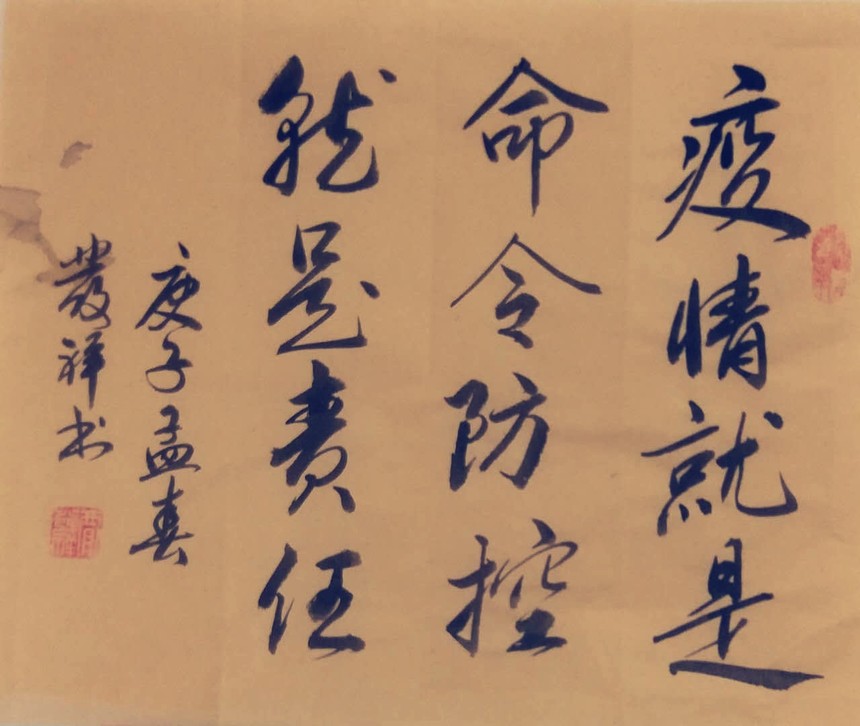 疫情就是
命令防控
就是责任
庚子孟春
发祥书